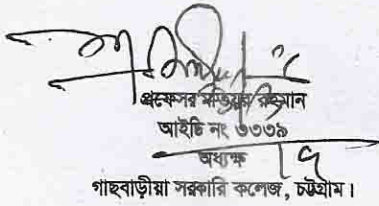 প্রফেসর রহমান
আইডি নং ৩৩৩৯
অধ্যক্ষ
গাছবাড়ীয়া সরকারি কলেজ, চট্টগ্রাম।